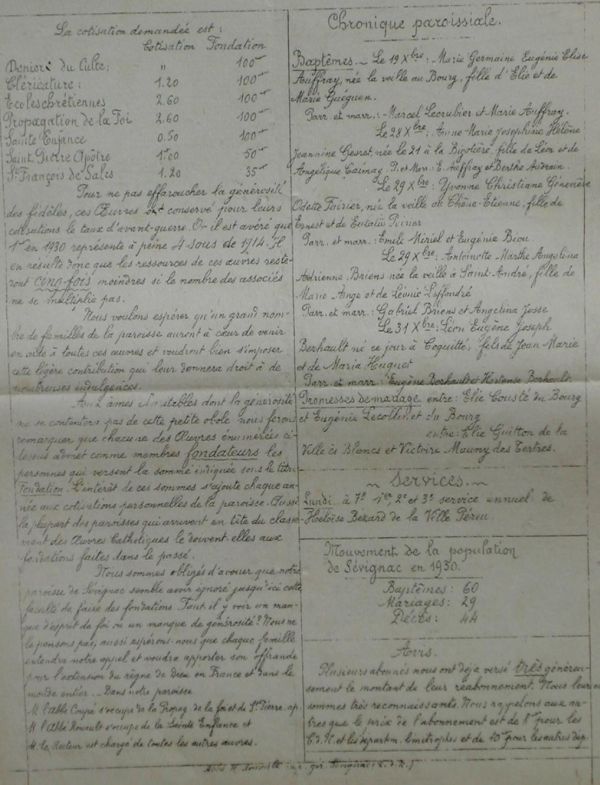 La cotisation demandée est :
Cotisation Fondation
Denier du Culte: " 100
Cléricature: 1.20 100
Ecoles chrétiennes 2.60 100
Propagation de la Foi 2.60 100
Sainte Enfance 0.50 100
Saint Pierre Apôtre 1.00 50
St François de Sales 1.20 35
Pour ne pas effaroucher la générosité
des fidèles, ces Œuvres ont conservé pour leurs
cotisations le taux d'avant-guerre. Or il est avéré que
1 en 1930 représente à peine 4 sous de 1914. Il
en résulte donc que les ressources de ces œuvres reste-
ront cinq fois moindres si le nombre des associés
ne se multiplie pas.
Nous voulons espérer qu'un grand nom-
bre de familles de la paroisse auront à cœur de venir
en aide à toutes ces œuvres et voudront bien s'imposer
cette légère contribution qui leur donnera droit à de
nombreuses indulgences.
Aux âmes charitables dont la générosité
ne se contentera pas de cette petite obole nous ferons
remarquer que chacune des Œuvres énumérées ci-
dessus admet comme membres fondateurs les
personnes qui versent la somme indiquée sous le titre
Fondation. L'intérêt de ces sommes s'ajoute chaque an-
née aux cotisations personnelles de la paroisse. Aussi
la plupart des paroisses qui arrivent en tête du classe-
ment des Œuvres Catholiques le doivent elles aux
fondations faites dans le passé.
Nous sommes obligés d'avouer que notre
paroisse de Sévignac semble avoir ignoré jusqu'ici cette
faculté de faire des fondations. Faut-il y voir un man-
que d'esprit de foi ou un manque de générosité? Nous ne
le pensons pas, aussi espérons-nous que chaque famille
entendra notre appel et voudra apporter son offrande
pour l'extension du règne de Dieu en France et dans le
monde entier. Dans notre paroisse
M. l'Abbé Coupé s'occupe de la Propag. de la foi et de St Pierre ap.
M. l'Abbé Rouault s'occupe de la Sainte Enfance et
M. le Recteur est chargé de toutes les autres œuvres.
Chronique paroissiale.
Baptêmes - Le 19 Xbre : Marie Germaine Eugénie Elise
Auffray, née la veille au Bourg, fille d'Elie et de
Marie Guéguen.
Parr. et marr. : Marcel Lecrubier et Marie Auffray.
Le 28 Xbre, Anne Marie Joséphine Hélène
Jeannine Gesret, née le 21 à la Bigotière, fille de Léon et de
Angélique P. et Marr. : E. Auffray et Berthe
Le 29 Xbre, Yvonne Christiane Geneviève
Odette Poirier, née la veille au Chêne-Etienne, fille de
Ernest et de Poirier
Parr. et marr. : Emile Miriel et Eugénie Biou
Le 29 Xbre : Antoinette Marthe Angelina
Adrienne Briens née la veille à Saint-André, fille de
Marie Ange et de Léonie
Parr. et marr : Gabriel Briens et Angelina Josse
Le 31 Xbre, Léon Eugène Joseph
Berhault né ce jour à Coguitté, fils de Jean-Marie
et de Maria Huguet
Parr. et marr : Eugène Berhault et Hortense Berhault
Promesses de mariage entre : Elie Cousté du Bourg
et Eugénie Lecollinet du Bourg
entre : Elie Guitton de la
Ville ès Blancs et Victoire Mauny des Tertres.
~ Services. ~
Lundi à 7h 1er 2e et 3e service annuel de
Héloïse Bezard de la Ville Péreu
Mouvement de la population
de Sévignac en 1930.
Baptêmes : 60
Mariages : 29
Décès : 44
Avis.
Plusieurs abonnés nous ont déjà versé très généreu-
sement le montant de leur réabonnement. Nous leur en
sommes très reconnaissants. Nous rappelons aux au-
tres que le prix de l'abonnement est de 8 pour les
C. d. N. et les départem. limitrophes et de 10 pour les autres dép.